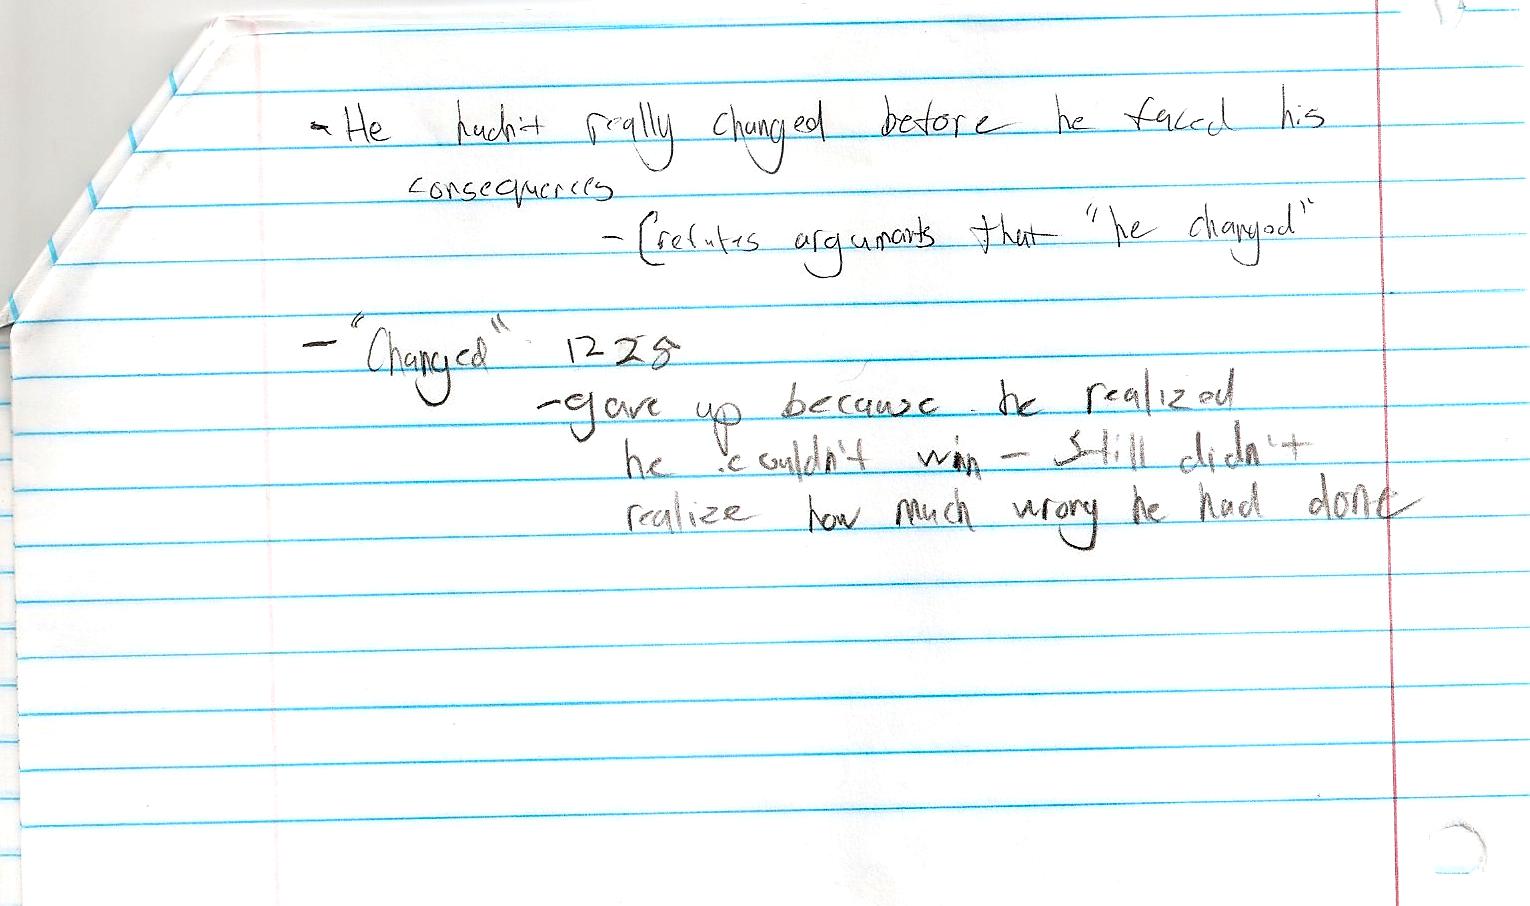 - He hadn't really changed before he faced his
consequences
- (refutes arguments that "he changed"
- "Changed" 1228
- gave up because he realized
he couldn't win - still didn't
realize how much wrong he had done